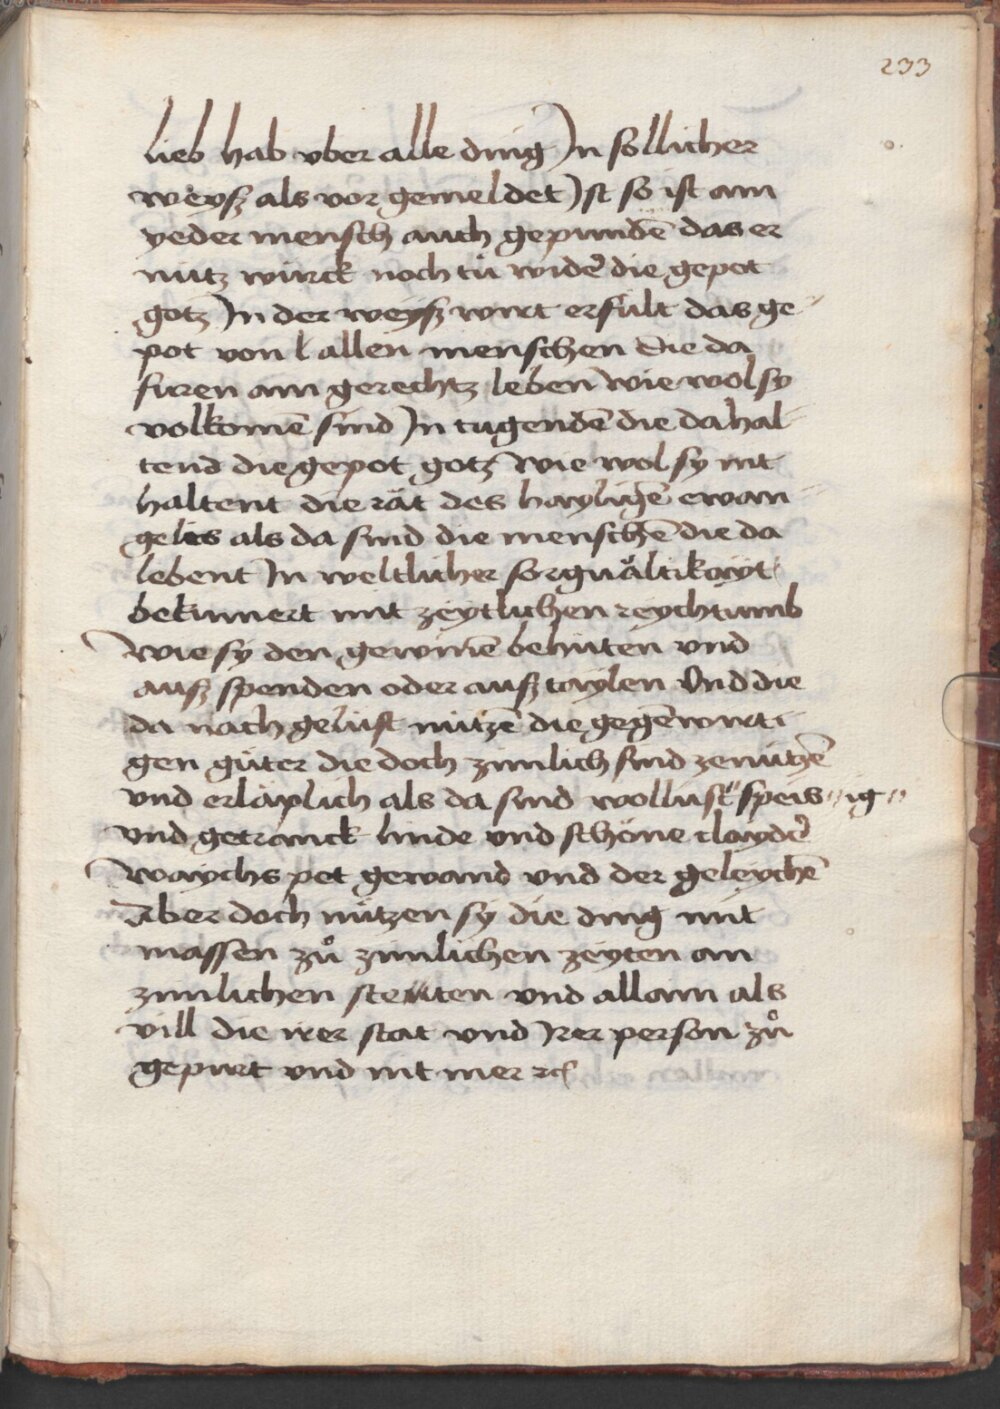 233
lieb hab vber alle ding Jn sollicher
weysz als vor gemeldet Jst so ist ain
yeder mensch auch gepundē das er
nütz würck noch tů widē die gepot
gotz Jn der weysz wirt erfült das ge-
pot von l allen menschen die da
füren ain gerechtz leben wie wol sy
volkomē sind Jn tugendē die da hal-
tend die gepot gotz wie wol sy nit
haltent die rät des hayligē ewan-
gelis als da sind die menschē die da
lebent Jn weltlicher sorguältikayt
bekümert mit zeytlichen reychtumb
wie sy den gewinē behüten vnd
ausz spenden oder ausz taylen Vnd die
da nach gelust nützē die gegēwirti
gen güter die doch zimlich sind zenützē
vnd erläplich als da sind wollust speis ig
vnd getranck linde vnd schöne klaydē
waychs pet gewand vnd der geleychē
Aber doch nützen sy die ding mit
massen zů zimlichen zeyten an
zimlichen stetten vnd allain als
vill die irer stat vnd Jrer person zů
gepürt vnd nit mer ꝛc